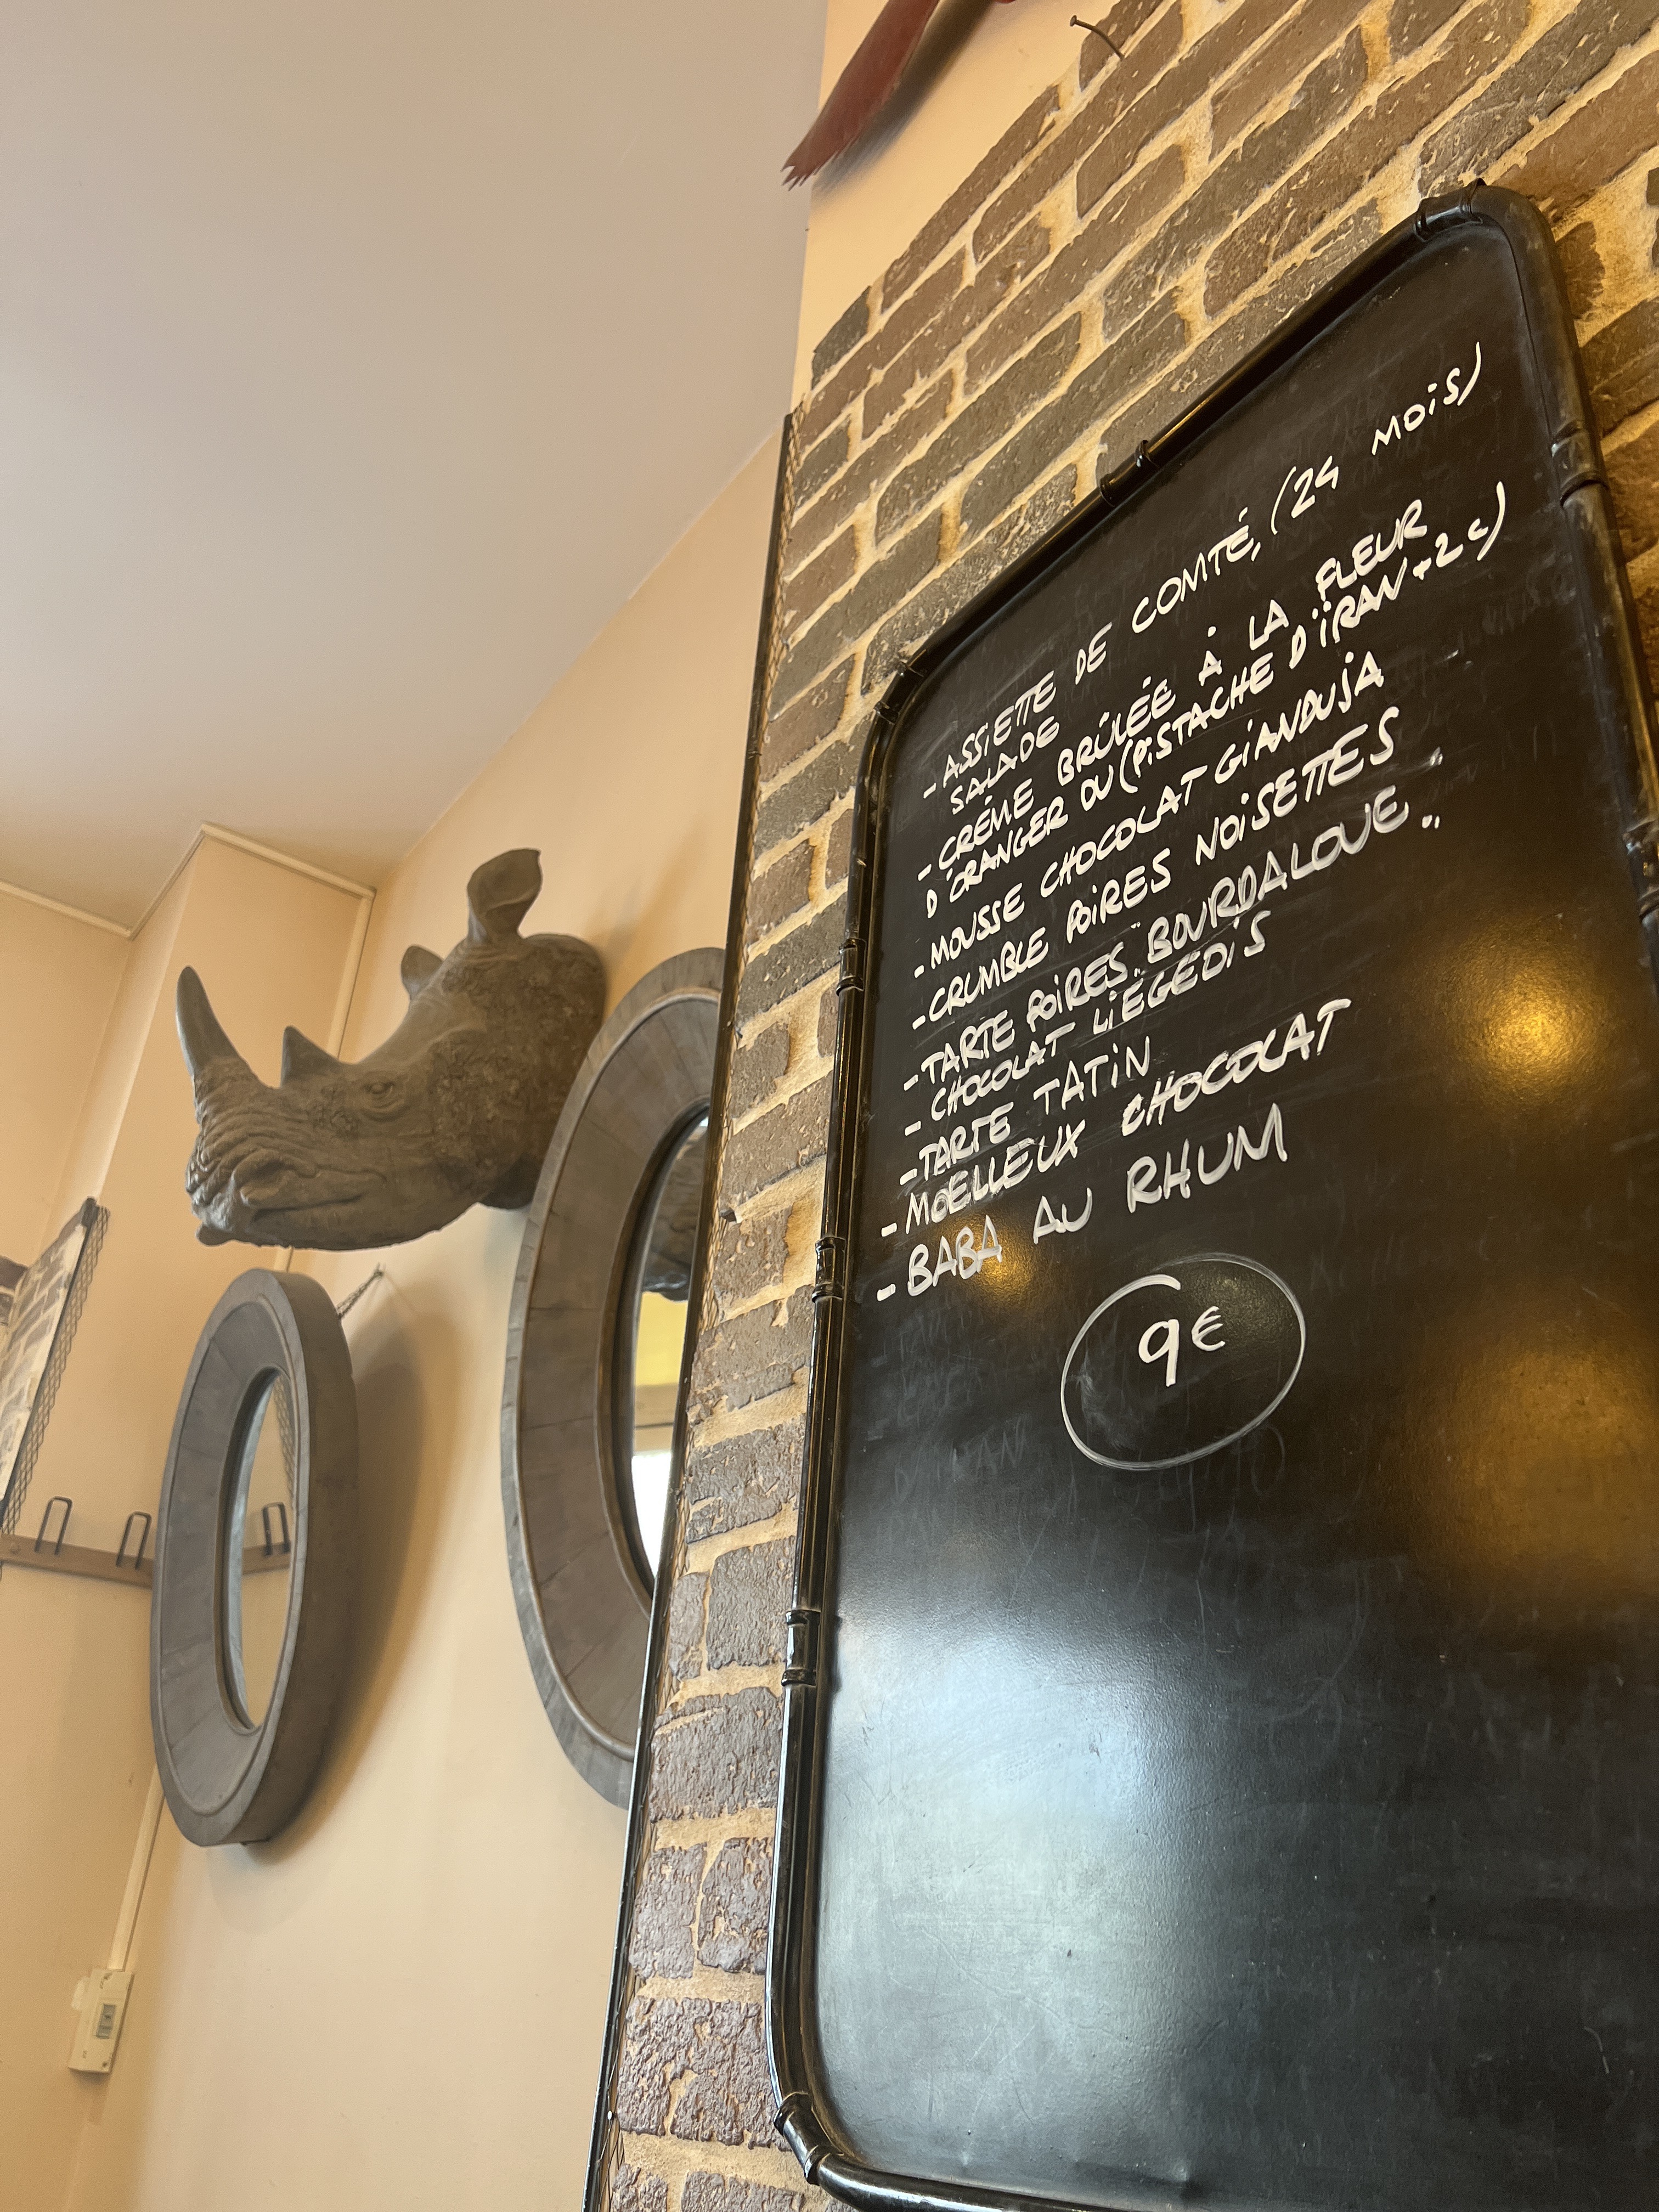 - ASSIETTE DE COMTÉ, (24 MOIS)
SALADE
- CRÈME BRÛLÉE À LA FLEUR
D'ORANGER OU (PISTACHE D'IRAN +2€)
- MOUSSE CHOCOLAT GIANDUJA
- CRUMBLE POIRES NOISETTES
- TARTE POIRES "BOURDALOUE"..
- CHOCOLAT LIÉGEOIS
- TARTE TATIN
- MOELLEUX CHOCOLAT
- BABA AU RHUM
9€